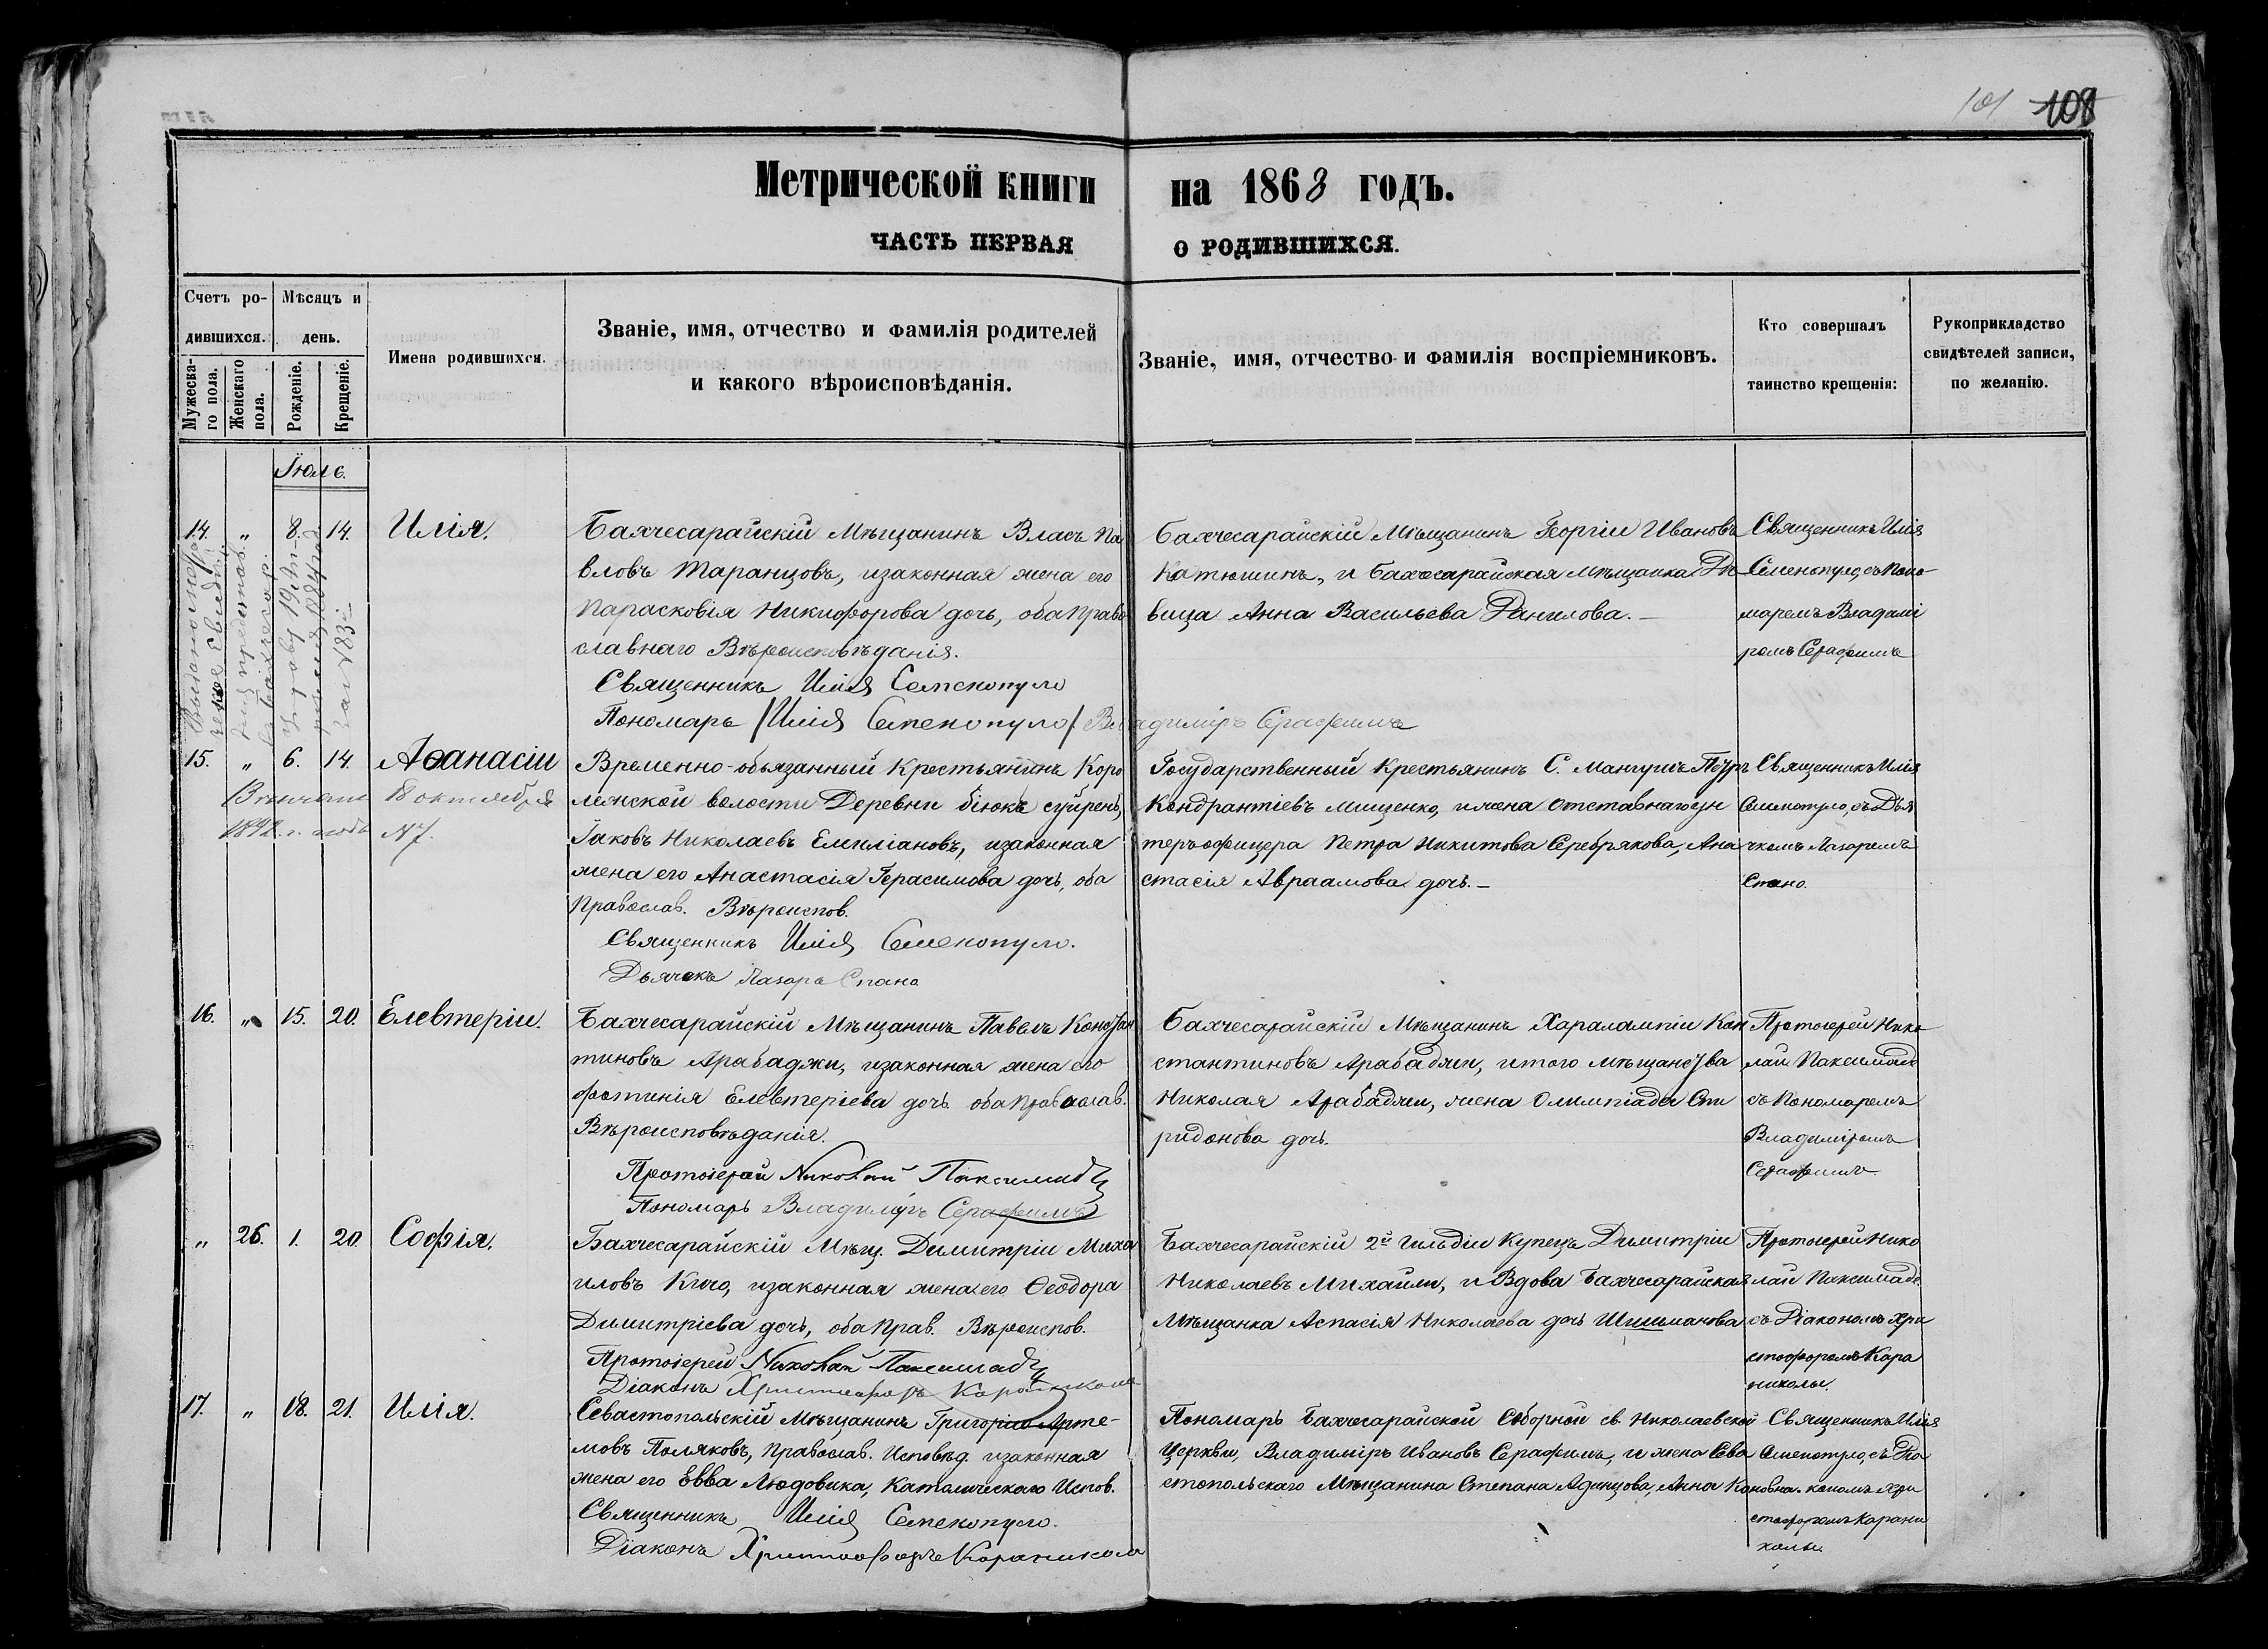 101 108
Метрической книги на 1868 годъ.
ЧАСТЬ ПЕРВАЯ О РОДИВШИХСЯ.
Счетъ родившихся.
Мужескаго пола.
Женскаго пола.
Мѣсяцъ и день.
Рожденіе.
Крещеніе.
Имена родившихся.
Званіе, имя, отчество и фамилія родителей
и какого вѣроисповѣданія.
Званіе, имя, отчество и фамилія воспріемниковъ.
Кто совершалъ
таинство крещенія:
Рукоприкладство
свидѣтелей записи,
по желанію.
Іюль.
14. " 8. 14. Илія.
Бахчесарайскій Мѣщанинъ Власъ Па
вловъ Таранцовъ, изаконная жена его
Парасковія Никифорова дочь, оба Право
славнаго Вѣроисповѣданія.
Священникъ Илія Семенопуло
Пономарь /Илія Семенопуло/ Владиміръ Серафимъ
Бахчесарайскій Мѣщанинъ Георгіи Ивановъ
Катюшинъ, и Бахчесарайская Мѣщанка Дѣ
вица Анна Васильева Данилова.—
Священникъ Илія
Семенопуло, съ Поно-
маремъ Владими
ромъ Серафимъ
15. " 6. 14. Аѳанасіи
Вѣнчанъ 18 октября
1892 г. подъ №7.
Временно-обязанный Крестьянинъ Коро
лезской волости Деревни Біюкъ сюйрень,
Іаковъ Николаевъ Емиліановъ, изаконная
жена его Анастасія Герасимова дочь, оба
Православ. Вѣроиспов.
Священникъ Илія Семенопуло.
Дьячекъ Лазарь Спано
Государственный Крестьянинъ С. Мангушъ Петръ
Кондрантіевъ Мищенко, и жена Отставнаго ун
теръофицера Петра Никитова Серебрякова, Ана
стасія Авраамова дочь.—
Священникъ Илія
Семенопуло, съ Дья
чкомъ Лазаремъ
Спано.
16. " 15. 20. Елевтеріи.
Бахчесарайскій Мѣщанинъ Павелъ Констан
тиновъ Арабаджи, изаконная жена его
Фотинія Елевтеріева дочь оба православ.
Вѣроисповѣданія.
Протоіерей Николай Паксимади
Пономарь Владиміръ Серафимъ
Бахчесарайскій Мѣщанинъ Харалампіи Кон
стантиновъ Арабаджи, итого мѣщанства
Николая Арабаджи, жена Олимпіада Спи
ридонова дочь.
Протоіерей Нико
лай Паксимади
съ Пономаремъ
Владиміромъ
Серафимъ
" 26. 1. 20. Софія.
Бахчесарайскій Мѣщ. Димитріи Миха
иловъ Кичо, изаконная жена его Ѳеодора
Димитріева дочь, оба Прав. Вѣроиспов.
Протоіерей Николай Паксимади
Діаконъ Христофоръ Караникола
Бахчесарайскій 2й Гильдіи Купецъ Димитріи
Николаевъ Михайли, и Вдова Бахчесарайская
Мѣщанка Аспасія Николаева дочь Шишманова
Протоіерей Нико
лай Паксимади
съ Діакономъ Хри
стофоромъ Кара
николы.
17. " 18. 21. Илія.
Севастопольскій Мѣщанинъ Григорій Арте-
мовъ Поляковъ, Православ. Исповѣд. изаконная
жена его Евва Людовика, Католическаго Испов.
Священникъ Илія Семенопуло.
Діаконъ Христофоръ Караникола
Пономарь Бахчесарайской Соборной св. Николаевской
Церкви, Владиміръ Ивановъ Серафимъ, и жена Сева
стопольскаго Мѣщанина Степана Адинцова, Анна Кановна.
Священникъ Илія
Семенопуло, съ Діа
кономъ Хри
стофоромъ Карани
колы